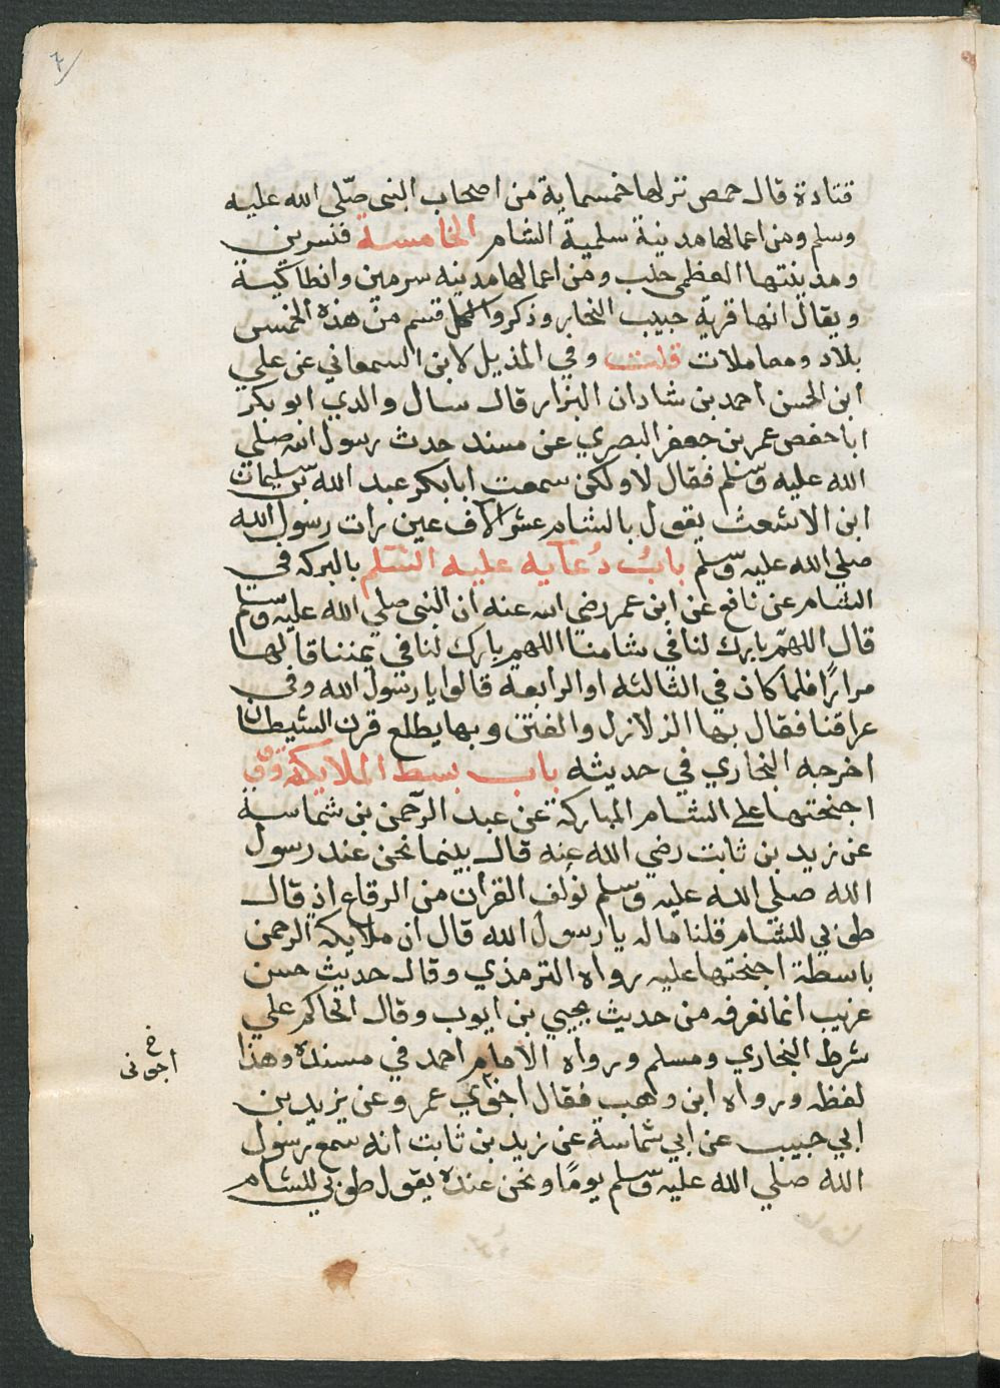 ٧
قتادة قال حمص نزلها خمسماية من اصحاب النبى صلّى الله عليه
وسلم ومن اعمالها مدينة سلمية الشام الخامسة قنسرين
ومدينتها العظمى حلب ومن اعمالها مدينه سرمين وانطاكية
ويقال انها قرية حبيب النجار وذكروا لكل قسم من هذه الخمس
بلاد ومعاملات قلت وفي المذيل لابن السمعاني عن علي
ابن الحسن احمد بن شادان البزار قال سال والدي ابو بكر
ابا حفص عمر بن جعفر البصري عن مسند حدث رسول الله صلي
الله عليه وسّلم فقال لا ولكن سمعت ابا بكر عبد الله بن سليمان
ابن الاشعث يقول بالشام عشر الاف عين رات رسول الله
صلي الله عليه وسّلم بابُ دُعَآيه عليه السّلم بالبركه في
الشام عن نافع عن ابن عمر رضي الله عنه ان النبى صلي الله عليه وسّلم
قال اللهمّ بارك لنا في شامنا اللهم بارك لنا في يمننا قالها
مرارًا فلما كان في الثالثه او الرابعه قالوا يا رسول الله وفي
عراقنا فقال بها الزلازل والفتن وبها يطلع قرن الشيطان
اخرجه البخاري في حديثه باب بسط الملايكة
اجنحتها على الشام المباركة عن عبد الرّحمن بن شماسة
عن زيد بن ثابت رضي الله عنه قال بينما نحن عند رسول
الله صلي الله عليه وسلم نؤلف القران من الرقاع اذ قال
طوبي للشام قلنا ما له يا رسول الله قال ان ملايكة الرحمن
باسطة اجنحتها عليه رواه الترمذي وقال حديث حسن
غريب انما نعرفه من حديث يحيي بن ايوب وقال الحاكم علي
شرط البخاري ومسلم ورواه الامام احمد في مسنده وهذا
لفظه ورواه ابن وهب فقال عمرو عن يزيد بن
ابي حبيب عن ابي شماسة عن زيد بن ثابت انه سمع رسول
الله صلي الله عليه وسّلم يومًا ونحن عنده يقول طوبي للشام